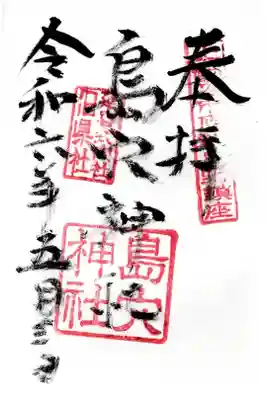 奉拝
鎮座
島穴神社
島穴
神社
旧県社
令和六年五月三日